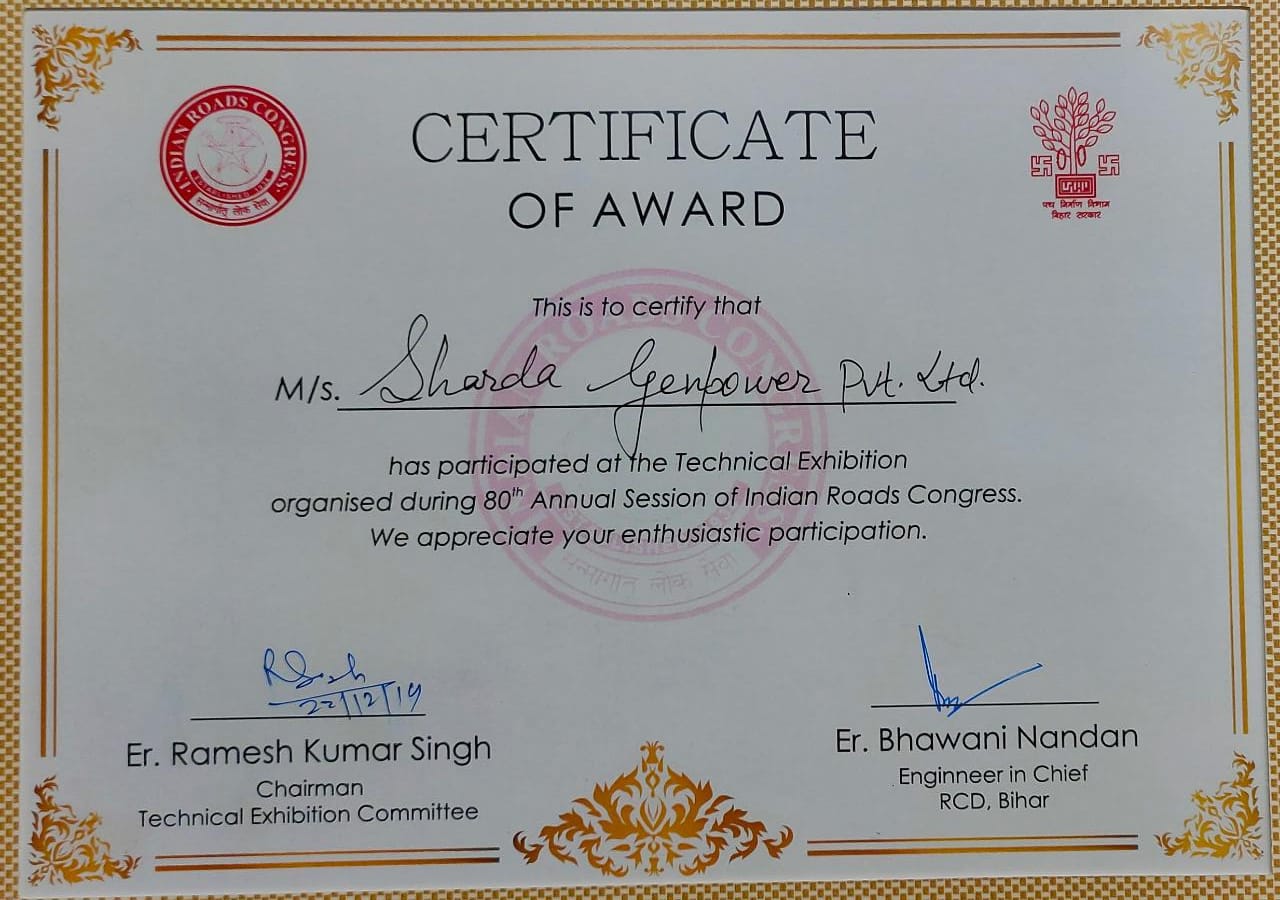 INDIAN ROADS CONGRESS
ESTABLISHED 1934
सन्मार्गात् लोक सेवा
CERTIFICATE
OF AWARD
पथ निर्माण विभाग
बिहार सरकार
This is to certify that
M/s. Sharda Genpower Pvt. Ltd.
has participated at the Technical Exhibition
organised during 80th Annual Session of Indian Roads Congress.
We appreciate your enthusiastic participation.
22/12/19
Er. Ramesh Kumar Singh
Chairman
Technical Exhibition Committee
Er. Bhawani Nandan
Enginneer in Chief
RCD, Bihar